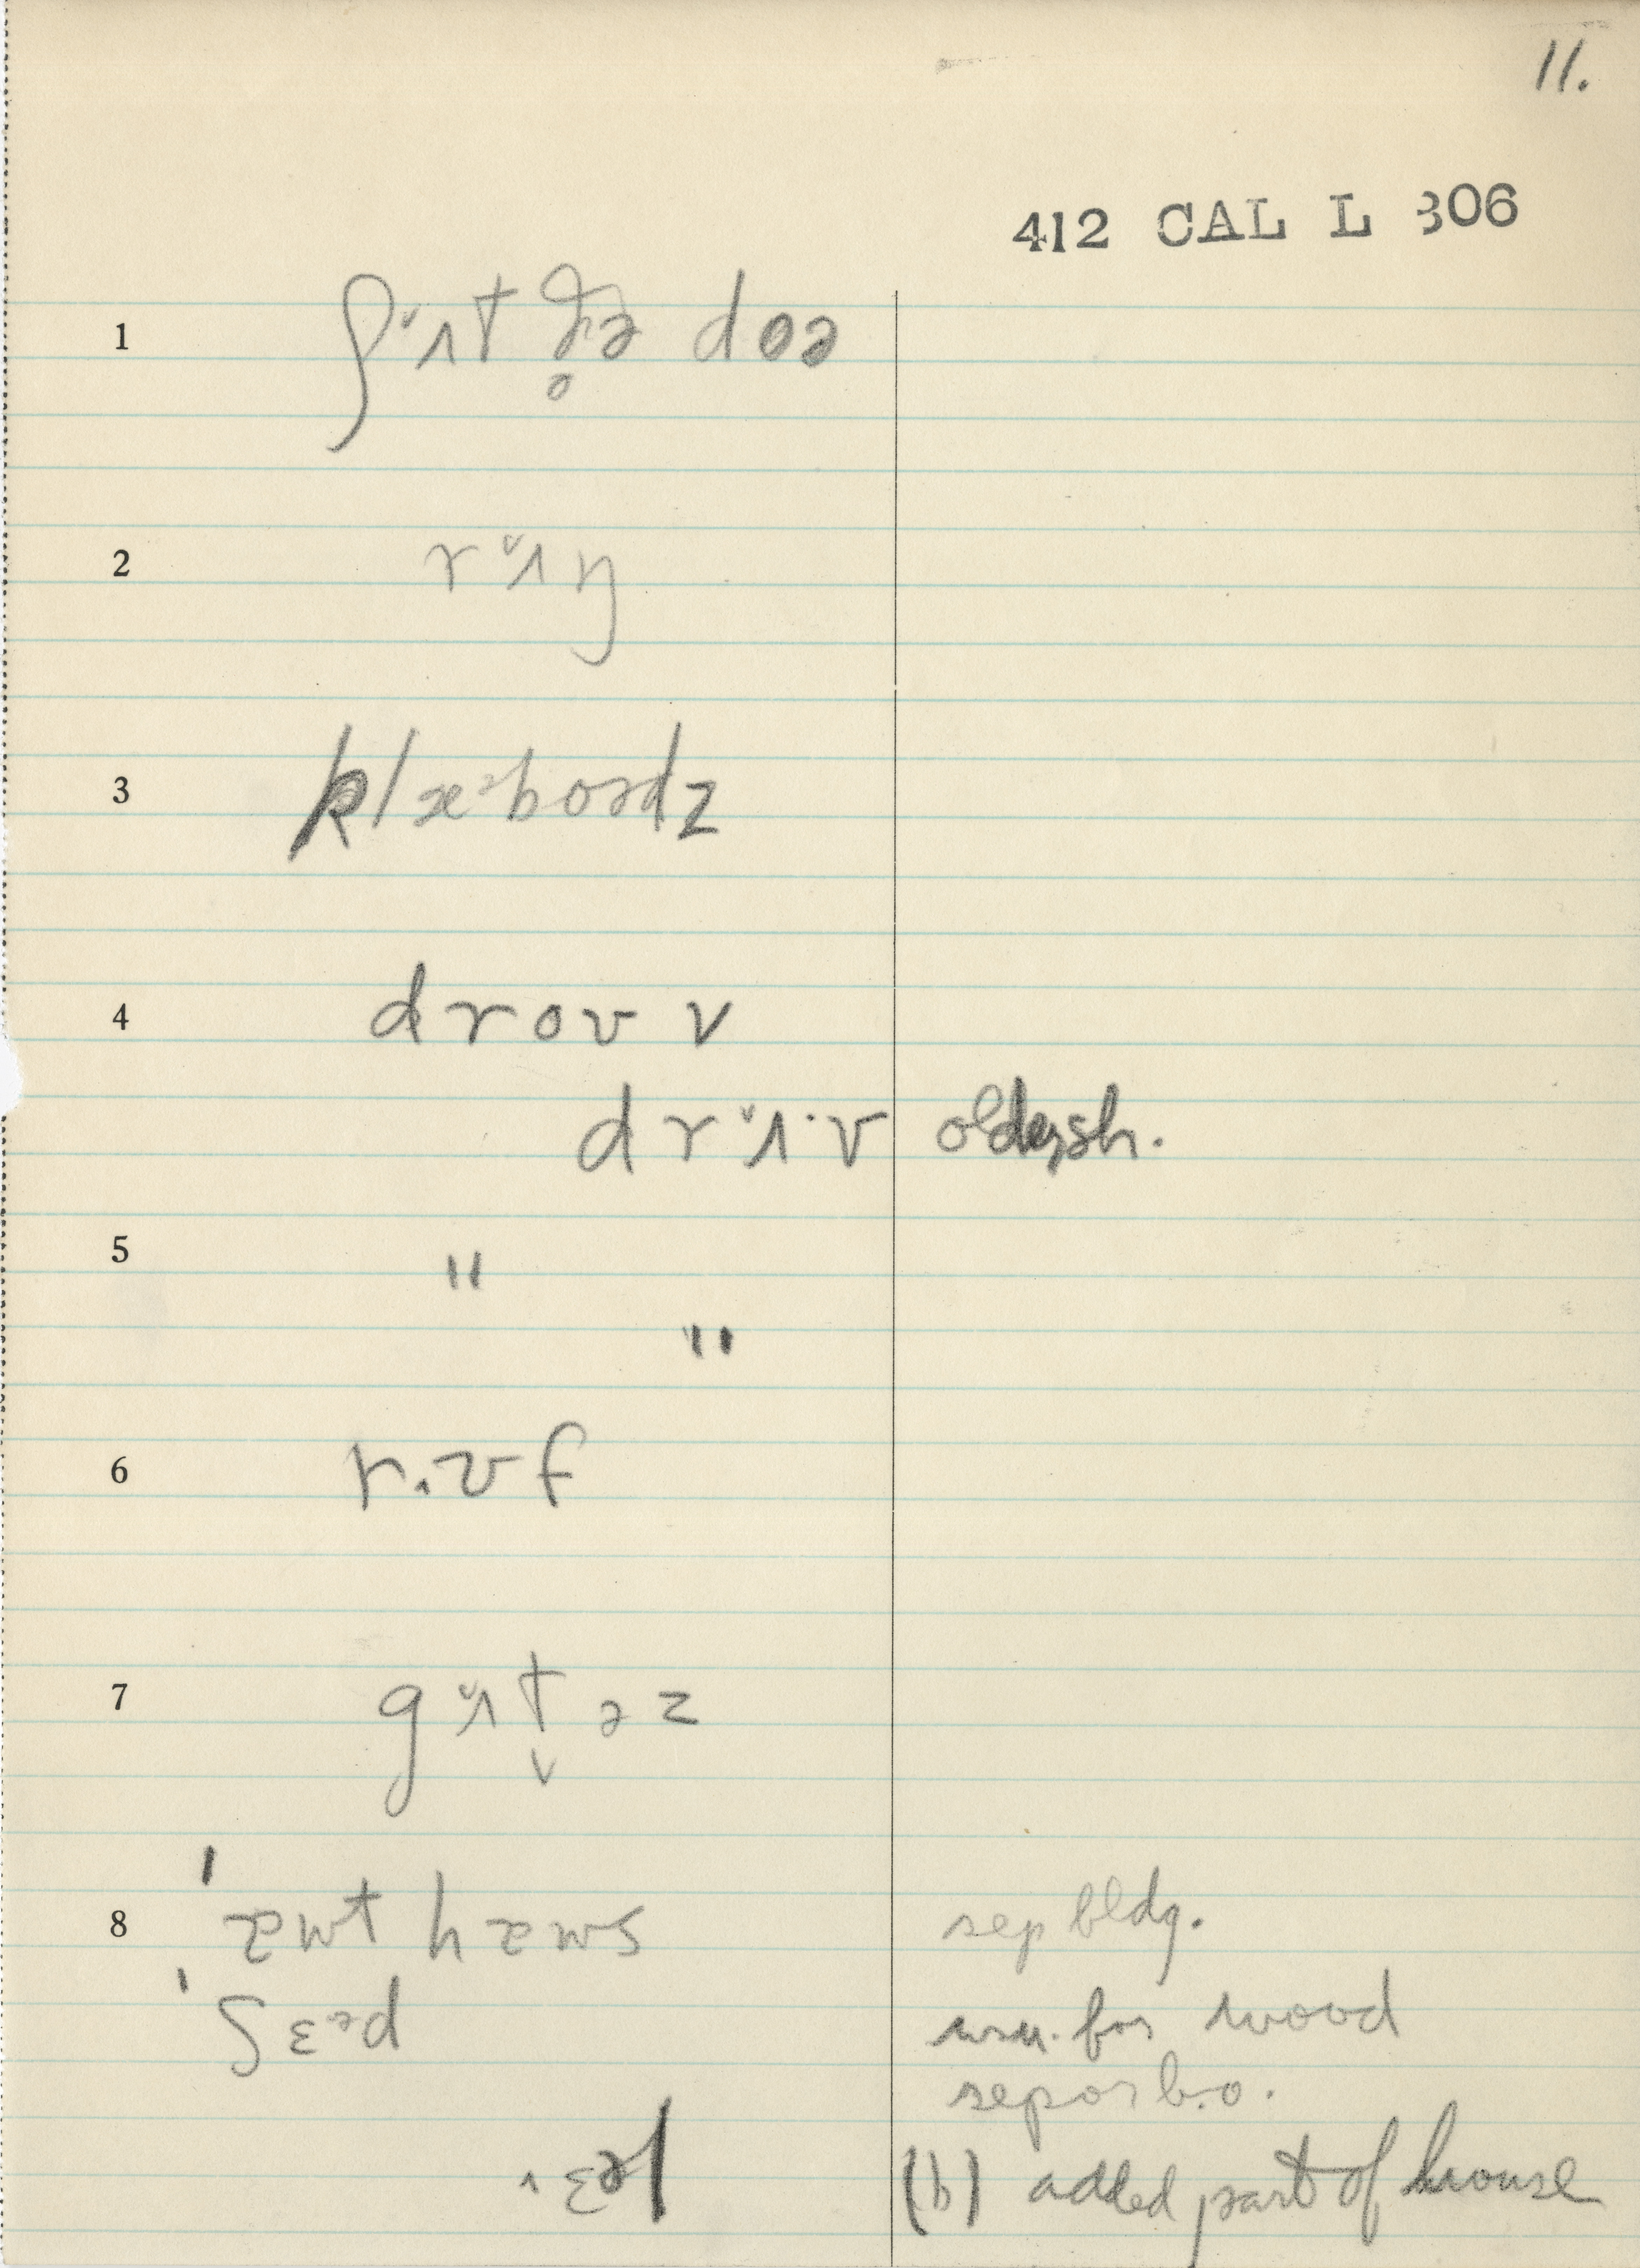 11.
412 CAL L 306
1 ʃᵛɪt ðə doə
2 rᵛɪŋ
3 klæᵊboədz
4 droʊ v
drᵛɪ·v oldersh.
5 "
"
6 r.ʊf
7 gᵛɪt̬əz
8 ˈaʊt haʊs sep bldg.
ˈʃɛᵊd usu. for wood
sep or b.o.
ˈɛəl (b) added part of house